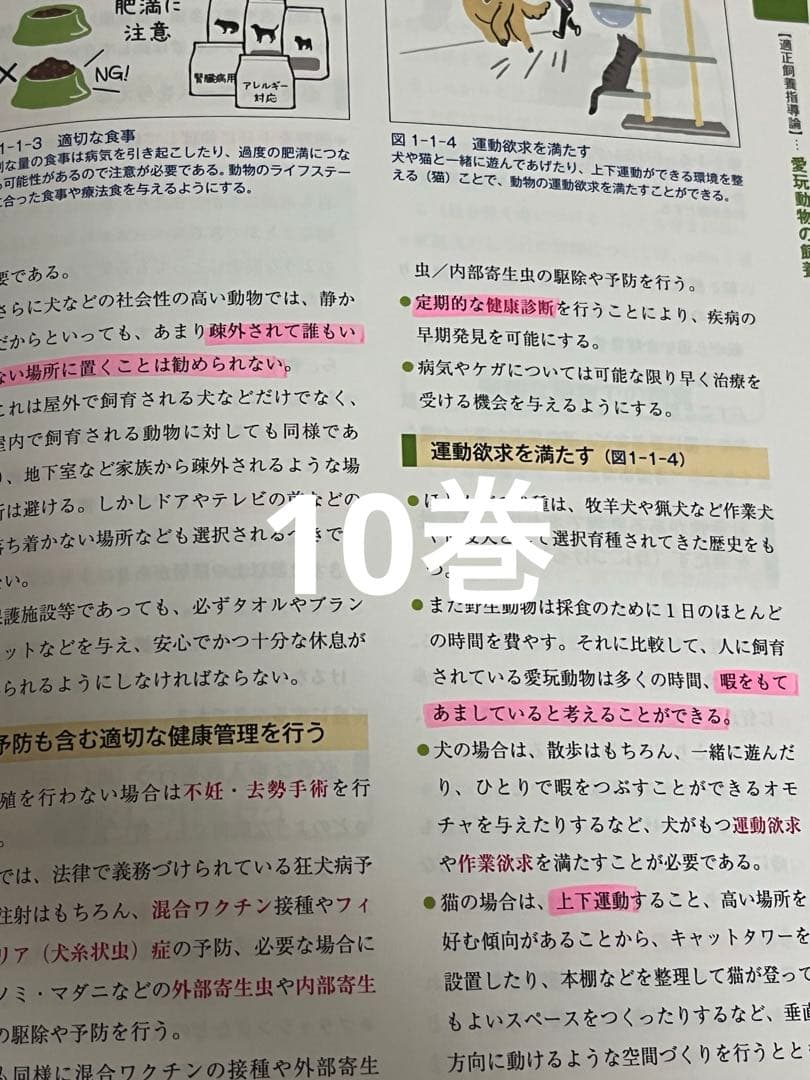 肥満に
注意
NG!
腎臓病用
アレルギー
対応
1-1-3 適切な食事
な量の食事は病気を引き起こしたり、過度の肥満につな
可能性があるので注意が必要である。動物のライフステー
合った食事や療法食を与えるようにする。
図 1-1-4 運動欲求を満たす
犬や猫と一緒に遊んであげたり、上下運動ができる環境を整
える（猫）ことで、動物の運動欲求を満たすことができる。
【適正飼養指導論】…愛玩動物の飼養
要である。
さらに犬などの社会性の高い動物では、静か
だからといっても、あまり疎外されて誰もい
ない場所に置くことは勧められない。
これは屋外で飼育される犬などだけでなく、
屋内で飼育される動物に対しても同様であ
り、地下室など家族から疎外されるような場
所は避ける。しかしドアやテレビの前などの
落ち着かない場所なども選択されるべきで
ない。
保護施設等であっても、必ずタオルやブラン
ケットなどを与え、安心でかつ十分な休息が
られるようにしなければならない。
予防も含む適切な健康管理を行う
殖を行わない場合は不妊・去勢手術を行
。
では、法律で義務づけられている狂犬病予
注射はもちろん、混合ワクチン接種やフィ
リア（犬糸状虫）症の予防、必要な場合に
ノミ・マダニなどの外部寄生虫や内部寄生
の駆除や予防を行う。
も同様に混合ワクチンの接種や外部寄生
虫／内部寄生虫の駆除や予防を行う。
●定期的な健康診断を行うことにより、疾病の
早期発見を可能にする。
●病気やケガについては可能な限り早く治療を
受ける機会を与えるようにする。
運動欲求を満たす（図1-1-4）
種は、牧羊犬や猟犬など作業犬
て選択育種されてきた歴史をも
つ。
●また野生動物は採食のために１日のほとんど
の時間を費やす。それに比較して、人に飼育
されている愛玩動物は多くの時間、暇をもて
あましていると考えることができる。
●犬の場合は、散歩はもちろん、一緒に遊んだ
り、ひとりで暇をつぶすことができるオモ
チャを与えたりするなど、犬がもつ運動欲求
や作業欲求を満たすことが必要である。
●猫の場合は、上下運動すること、高い場所を
好む傾向があることから、キャットタワーを
設置したり、本棚などを整理して猫が登って
もよいスペースをつくったりするなど、垂直
方向に動けるような空間づくりを行うととも
10巻